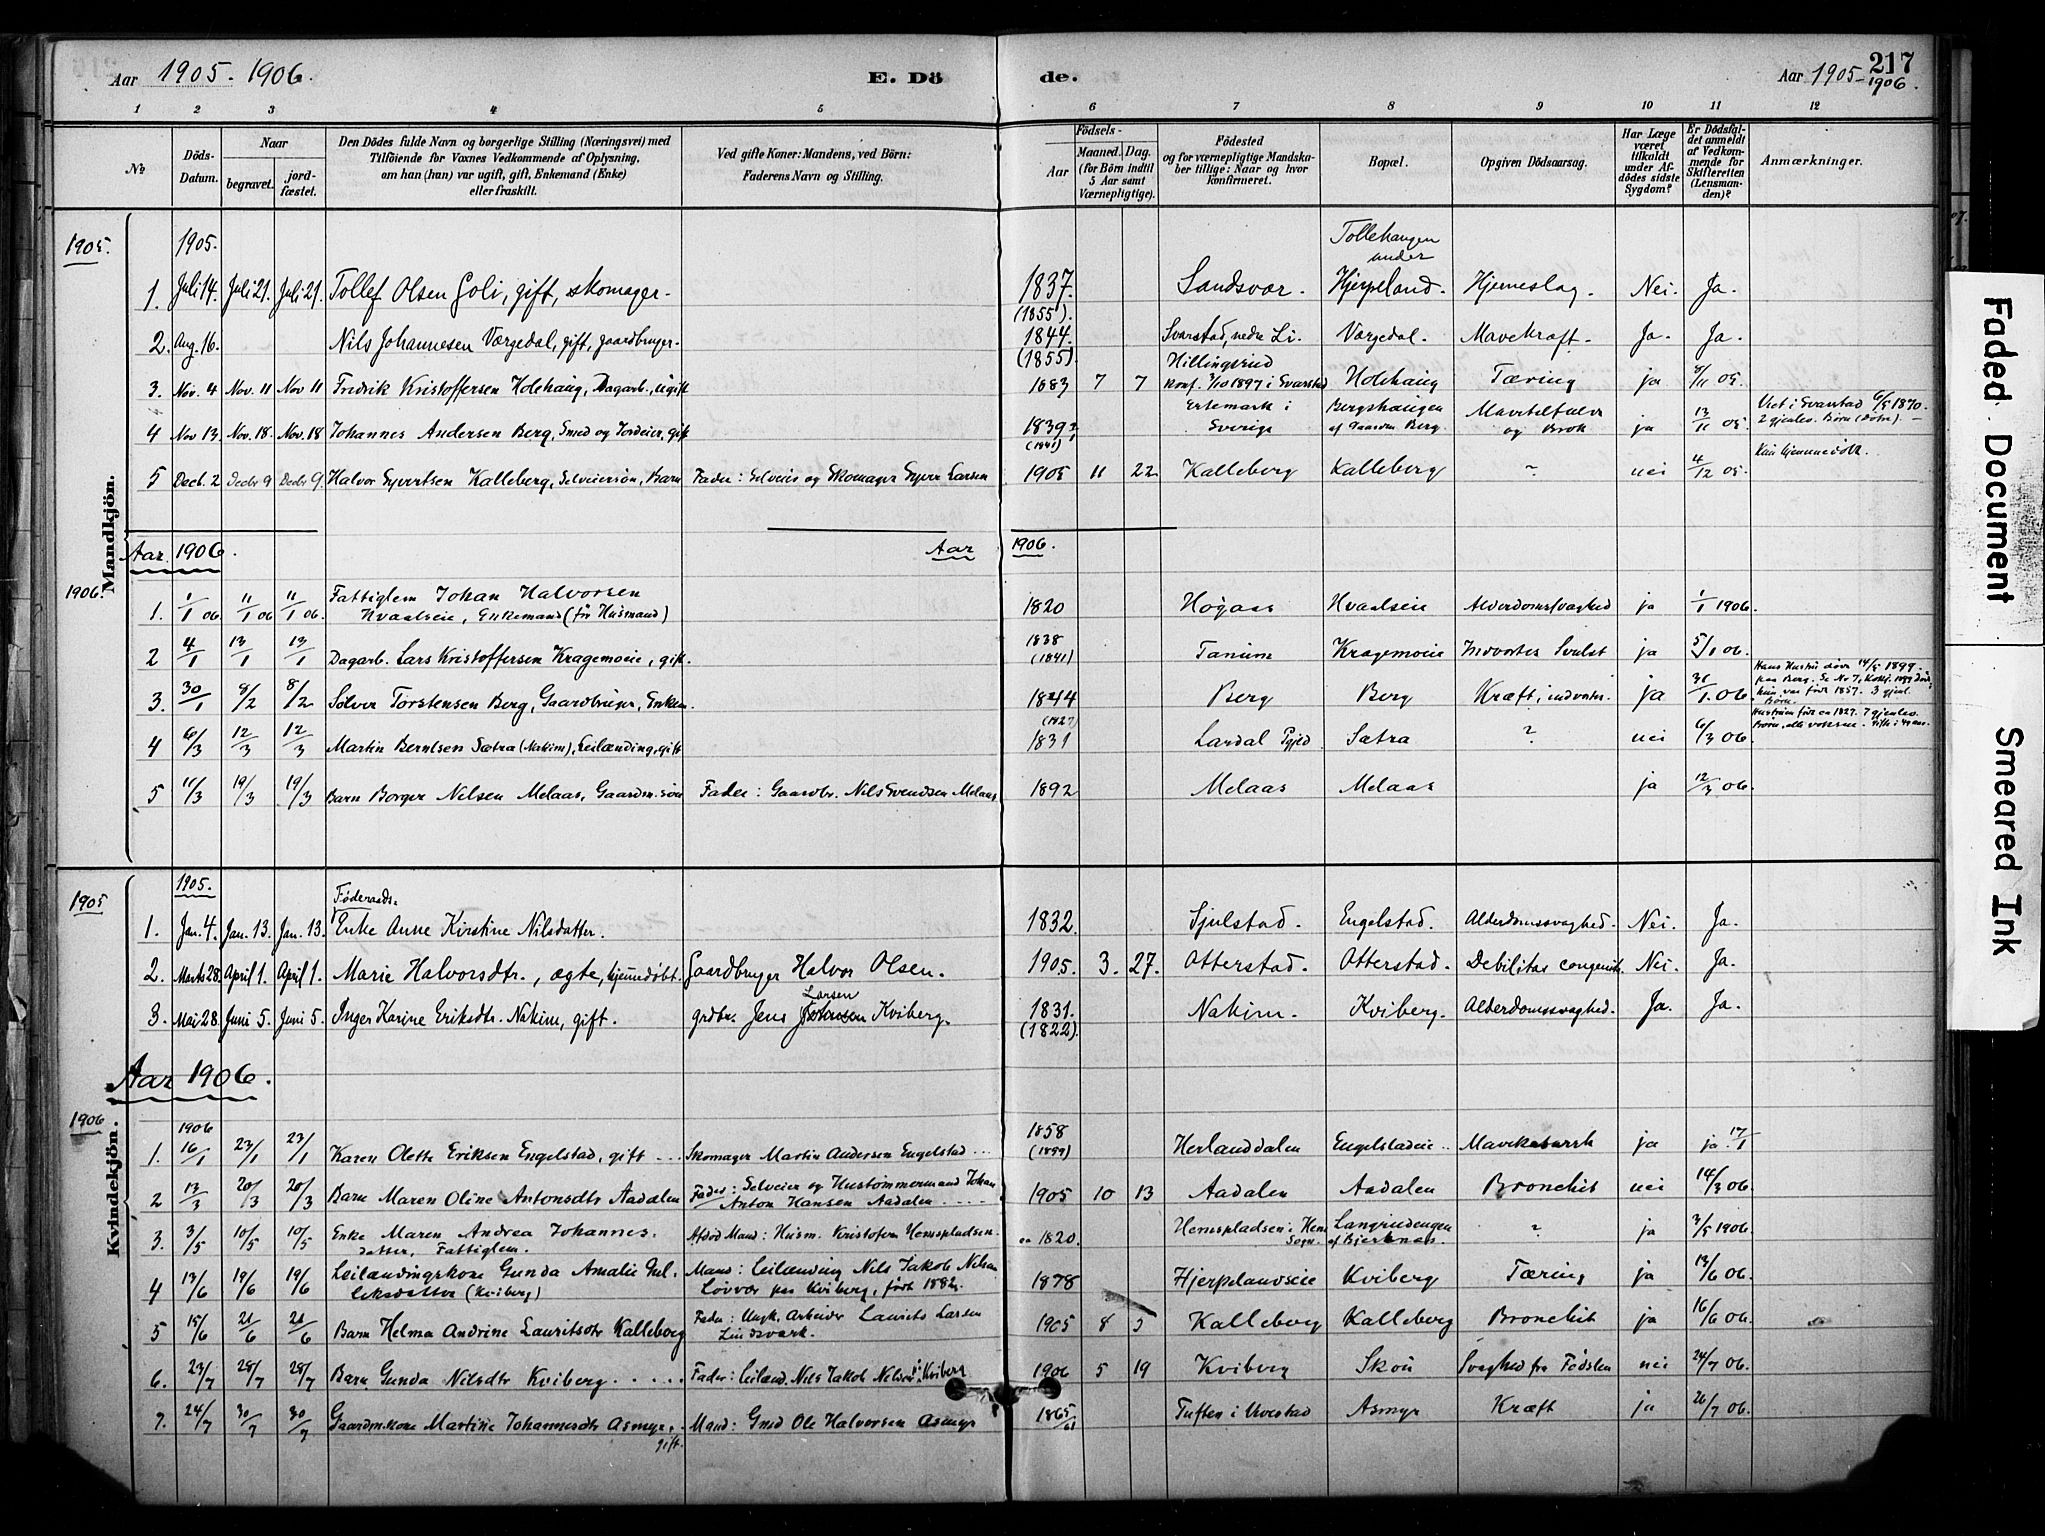 Aar 1905. 1906.
E. Dö
de.
Aar 1905-1906.
217
1 2 3 4 5 6 7 8 9 10 11 12
№
Döds-Datum.
Naar
begravet.
jord-fæstet.
Den Dödes fulde Navn og borgerlige Stilling (Næringsvei) med
Tilföiende for Voxnes Vedkommende af Oplysning,
om han (hun) var ugift, gift, Enkemand (Enke)
eller fraskilt.
Ved gifte Koner: Mandens, ved Börn:
Faderens Navn og Stilling.
Födsels-
Aar
Maaned. Dag.
(for Börn indtil
5 Aar samt
Værnepligtige).
Födested
og for værnepligtige Mandska-
ber tillige: Naar og hvor
konfirmeret.
Bopæl.
Opgiven Dödsaarsag.
Har Læge
været
tilkaldt
under Af-
dödes sidste
Sygdom?
Er Dödsfal-
det anmeldt
af Vedkom-
mende for
Skifteretten
(Lensman-
den)?
Anmærkninger.
Mandkjön.
1905. 1905.
1. Juli 14. Juli 21. Juli 21. Tollef Olsen Goli, gift, skomager. 1837. (1855). Sandsvær. Tollehaugen under Hjerpeland. Hjerneslag. Nei. Ja.
2. Aug. 16. Nils Johannesen Vargedal, gift, gaardbruger. 1844. (1855). Svarstad, nedre Li. Vargedal. Mavekræft. Ja. Ja.
3. Nov. 4 Nov. 11 Nov 11 Fredrik Kristoffersen Holehaug, Dagarb., ugift 1883 7 7 Hillingsrud konf. 3/10 1897 i Svarstad Holehaug Tæring ja 4/11 05.
4 Nov 13. Nov. 18. Nov. 18 Johannes Andersen Berg, Smed og Jordeier, gift 1839 (1841) Ertemark i Sverige Bergshaugen af Gaarden Berg. og Brok ja 13/11 05. Viet i Svarstad 6/5 1870. 2 gjenlev. Børn (Døtre).
5 Decb. 2 Decbr 9 Decbr 9. Halvor Syvertsen Kalleberg, Selveiersøn, Barn Fader: Selveier og Skomager Syver Larsen 1905 11 22 Kalleberg Kalleberg ? nei 4/12 05. Kun hjemmedøbt.
Aar 1906. Aar 1906.
1906. 1. 1/1 06 11/1 06 11/1 06 Fattiglem Johan Halvorsen
Hvaalseie, Enkemand (før Husmand) 1820 Høgaas Hvaalseie Alderdomssvaghed ja 1/1 1906.
2 4/1 13/1 13/1 Dagarb. Lars Kristoffersen Kragemoeie, gift. 1838 (1841) Tanum Kragemoeie Indvortes Svulst ja 5/1 06.
3. 30/1 8/2 8/2 Sølver Torstensen Berg, Gaardbruger, Enkem. 1844 Berg Berg Kræft, indvortes. ja 31/1. 06. Hans Hustru døde 14/5 1899. paa Berg. Se No 7, hun var født 1857. 3 gjenl. Børn.
4 6/3 12/3 12/3 Martin Berntsen Sætra (Nakim), Leilænding, gift (1827) 1831 Lardal Pgjed Sætra ? nei 6/3 06. Hustruen født ca 1827. 7 gjenlev. Børn, alle voksne.
5 11/3 19/3 19/3 Barn Borger Nilsen Melaas, Gaardm. søn Fader: Gaardbr. Nils Svendsen Melaas 1892 Melaas Melaas ja 12/3 06.
Kvindekjön.
1905 1905.
1. Jan. 4. Jan. 13. Jan. 13. Føderaads-Enke Anne Kirstine Nilsdatter. 1832. Sjulstad. Engelstad. Alderdomssvaghed. Nei. Ja.
2. Marts 28. April 1. April 1. Marie Halvorsdtr., ægte, hjemmedøbt. Gaardbruger Halvor Olsen. 1905. 3. 27. Otterstad. Otterstad. Debilitas congenita. Nei. Ja.
3. Mai 28. Juni 5. Juni 5. Inger Karine Eriksdtr. Nakim, gift. grdbr. Jens Larsen Kviberg. 1831. (1822). Nakim. Kviberg. Alderdomssvaghed. Ja. Ja.
Aar 1906.
1906 1906
1. 16/1 23/1 23/1 Karen Olette Eriksen Engelstad, gift ... Skomager Martin Andersen Engelstad ... 1858 (1899) Herlanddalen Engelstadeie .. ja ja 17/1
2 13/3 20/3 20/3 Barn Maren Oline Antonsdtr Aadalen Fader: Selveier og Hustømmermand Johan
Anton Hansen Aadalen .... 1905 10 13 Aadalen Aadalen Bronchit nei 14/3 06.
3. 3/5 10/5 10/5 Enke Maren Andrea Johannes-
datter, Fattiglem. Afdød Mand: Husm. Kristofer Hemspladsen. ca 1820. Hemspladsen i Hems Sogn. Langrudengen af Bjerknes. ? ja 3/5 1906.
4 13/6 19/6 19/6 Leilændingskone Gunda Amalie Gul-
leksdatter (Kviberg) Mand: Leilænding Nils Jakob Nilsen
Løvvær paa Kviberg, født 1882. 1878 Hjerpelandseie Kviberg Tæring ja 13/6 06.
5 15/6 21/6 21/6 Barn Helma Andrine Lauritsdtr Kalleberg Fader: Ungk. Arbeider Laurits Larsen
Lindsverk. 1905 8 5 Kalleberg Kalleberg Bronchit ja 16/6 06.
6. 23/7 28/7 28/7 Barn Gunda Nilsdtr Kviberg ..... Fader: Leilænd. Nils Jakob Nilsen Kviberg 1906 5 19 Kviberg Skou Svaghed fra Fødslen nei 24/7 06.
7. 24/7 30/7 30/7 Gaardm.kone Martine Johannesdtr Asmyr, gift. Mand: Gmd Ole Halvorsen Asmyr 1865/61 Tuften i Uvestad Asmyr Kræft ja 26/7 06.
Faded Document
Smeared Ink